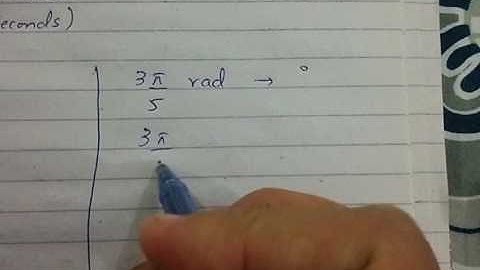 econds)
3π rad → °
5
3π